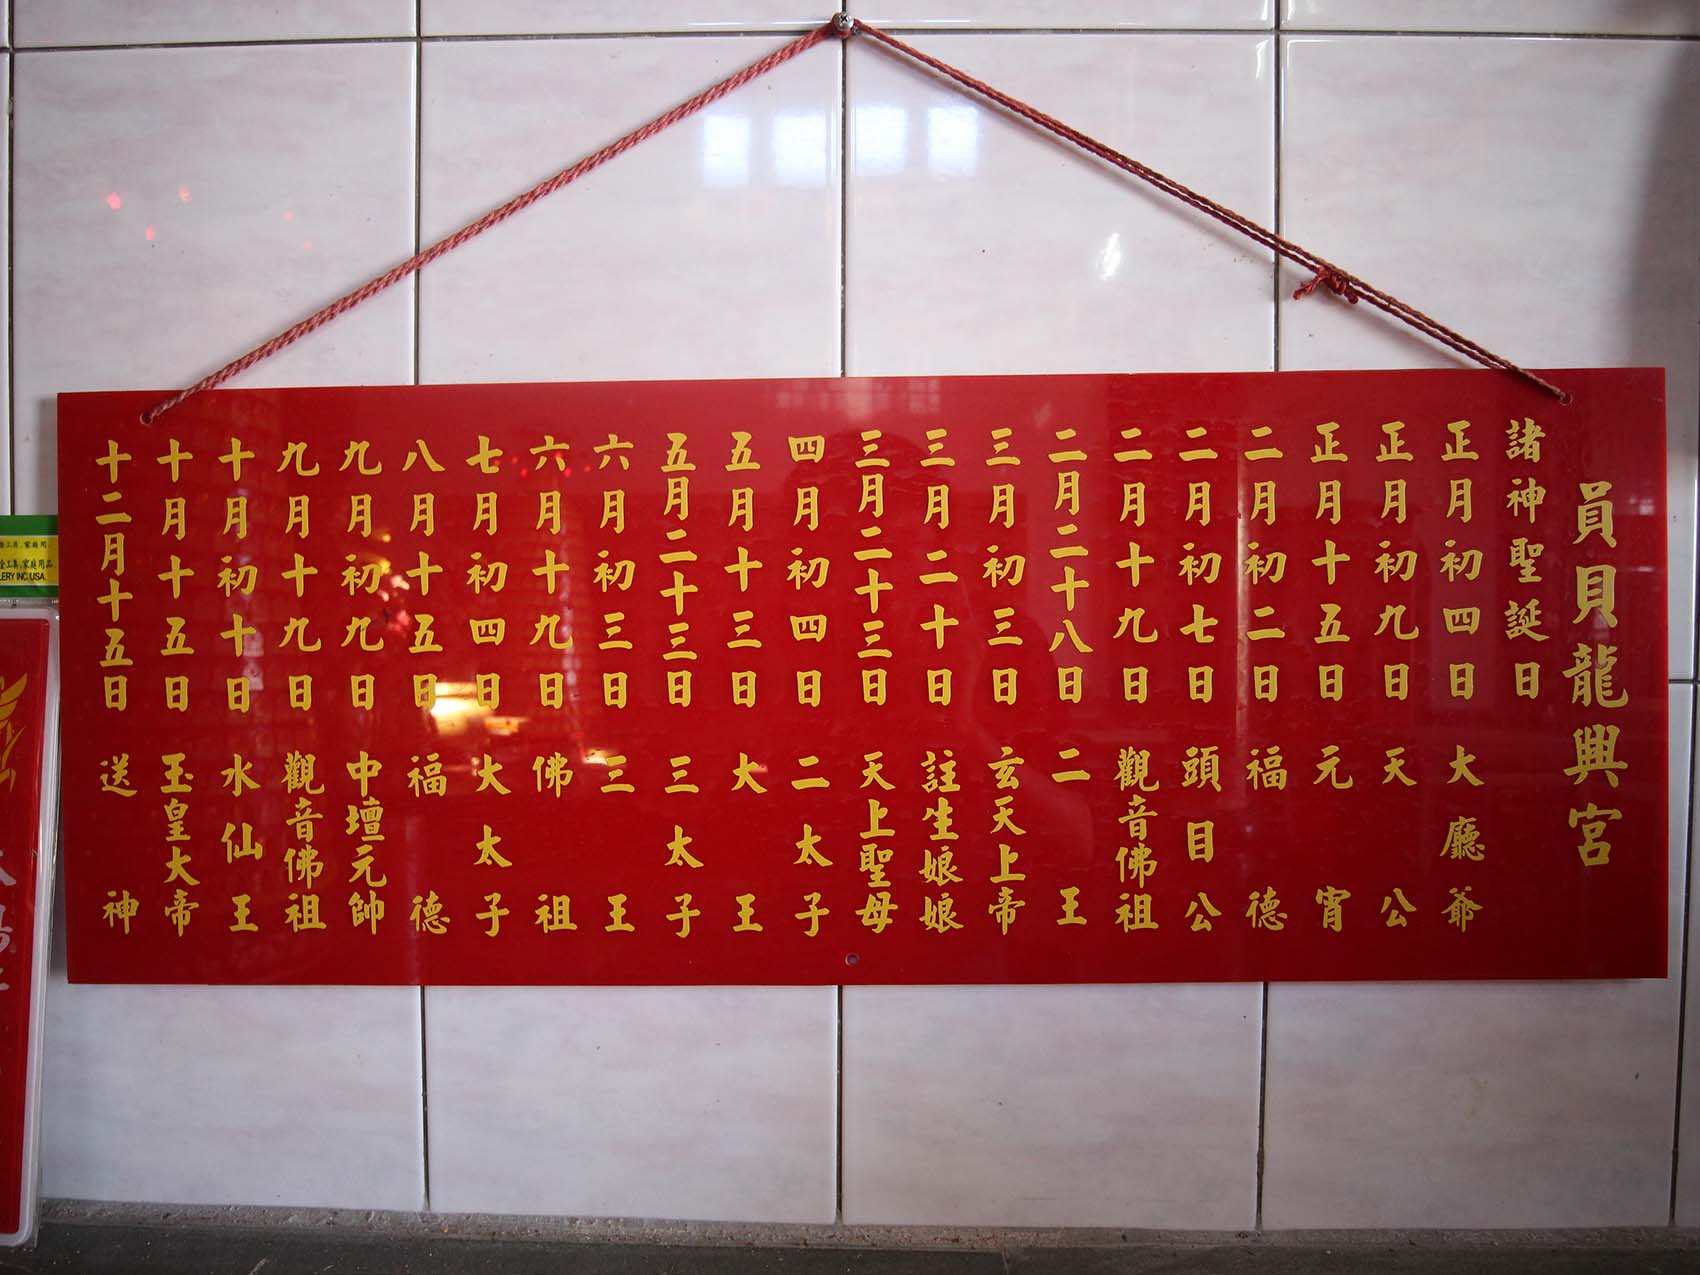 員貝龍興宮
諸神聖誕日
正月初四日 大廳爺
正月初九日 天公
正月十五日 元宵
二月初二日 福德
二月初七日 頭目公
二月十九日 觀音佛祖
二月二十八日 二王
三月初三日 玄天上帝
三月二十日 註生娘娘
三月二十三日 天上聖母
四月初四日 二太子
五月十三日 大王
五月二十三日 三太子
六月初三日 三王
六月十九日 佛祖
七月初四日 大太子
八月十五日 福德
九月初九日 中壇元帥
九月十九日 觀音佛祖
十月初十日 水仙王
十月十五日 玉皇大帝
十二月十五日 送神
家庭用
金工具,家庭用品
LERY INC.USA.